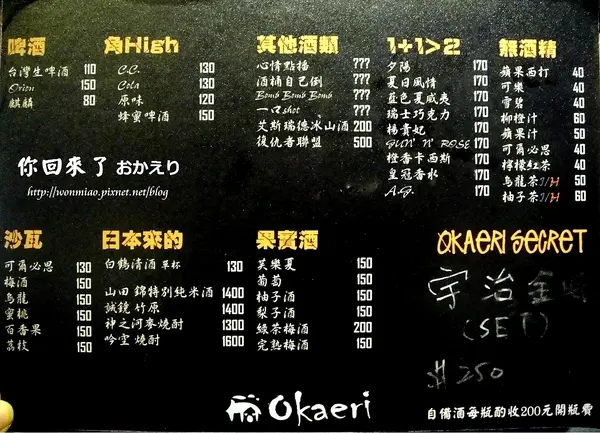 啤酒
台灣生啤酒 110
Orion 150
麒麟 80
角High
C.C. 130
Cola 130
原味 120
蜂蜜啤酒 150
其他酒類
心情點播 ???
酒桶自己倒 ???
Bomb Bomb Bomb ???
一口shot ???
艾斯瑞德冰山酒.200
復仇者聯盟 500
1+1>2
夕陽 170
夏日風情 170
藍色夏威夷 170
瑞士巧克力 170
楊貴妃 170
GUN' N' ROSE 170
橙香卡西斯 170
皇冠香水 170
A.G. 170
無酒精
蘋果西打 40
可樂 40
雪碧 40
柳橙汁 60
蘋果汁 50
可爾必思 40
檸檬紅茶 40
烏龍茶I/H 50
柚子茶I/H 60
你回來了 おかえり
http://wonmiao.pixnet.net/blog
沙瓦
可爾必思 130
梅酒 150
烏龍 150
蜜桃 150
百香果 150
荔枝 150
日本來的
白鶴清酒 單杯 130
山田 錦特別純米酒 1400
誠鏡 竹原 1400
神之河麥燒酎 1300
吟空 燒酎 1600
果實酒
芙樂夏 150
葡萄 150
柚子酒 150
梨子酒 150
綠茶梅酒 200
完熟梅酒 150
OKAERI SECRET
宇治金
(SET)
$250
Okaeri
自備酒每瓶酌收200元開瓶費